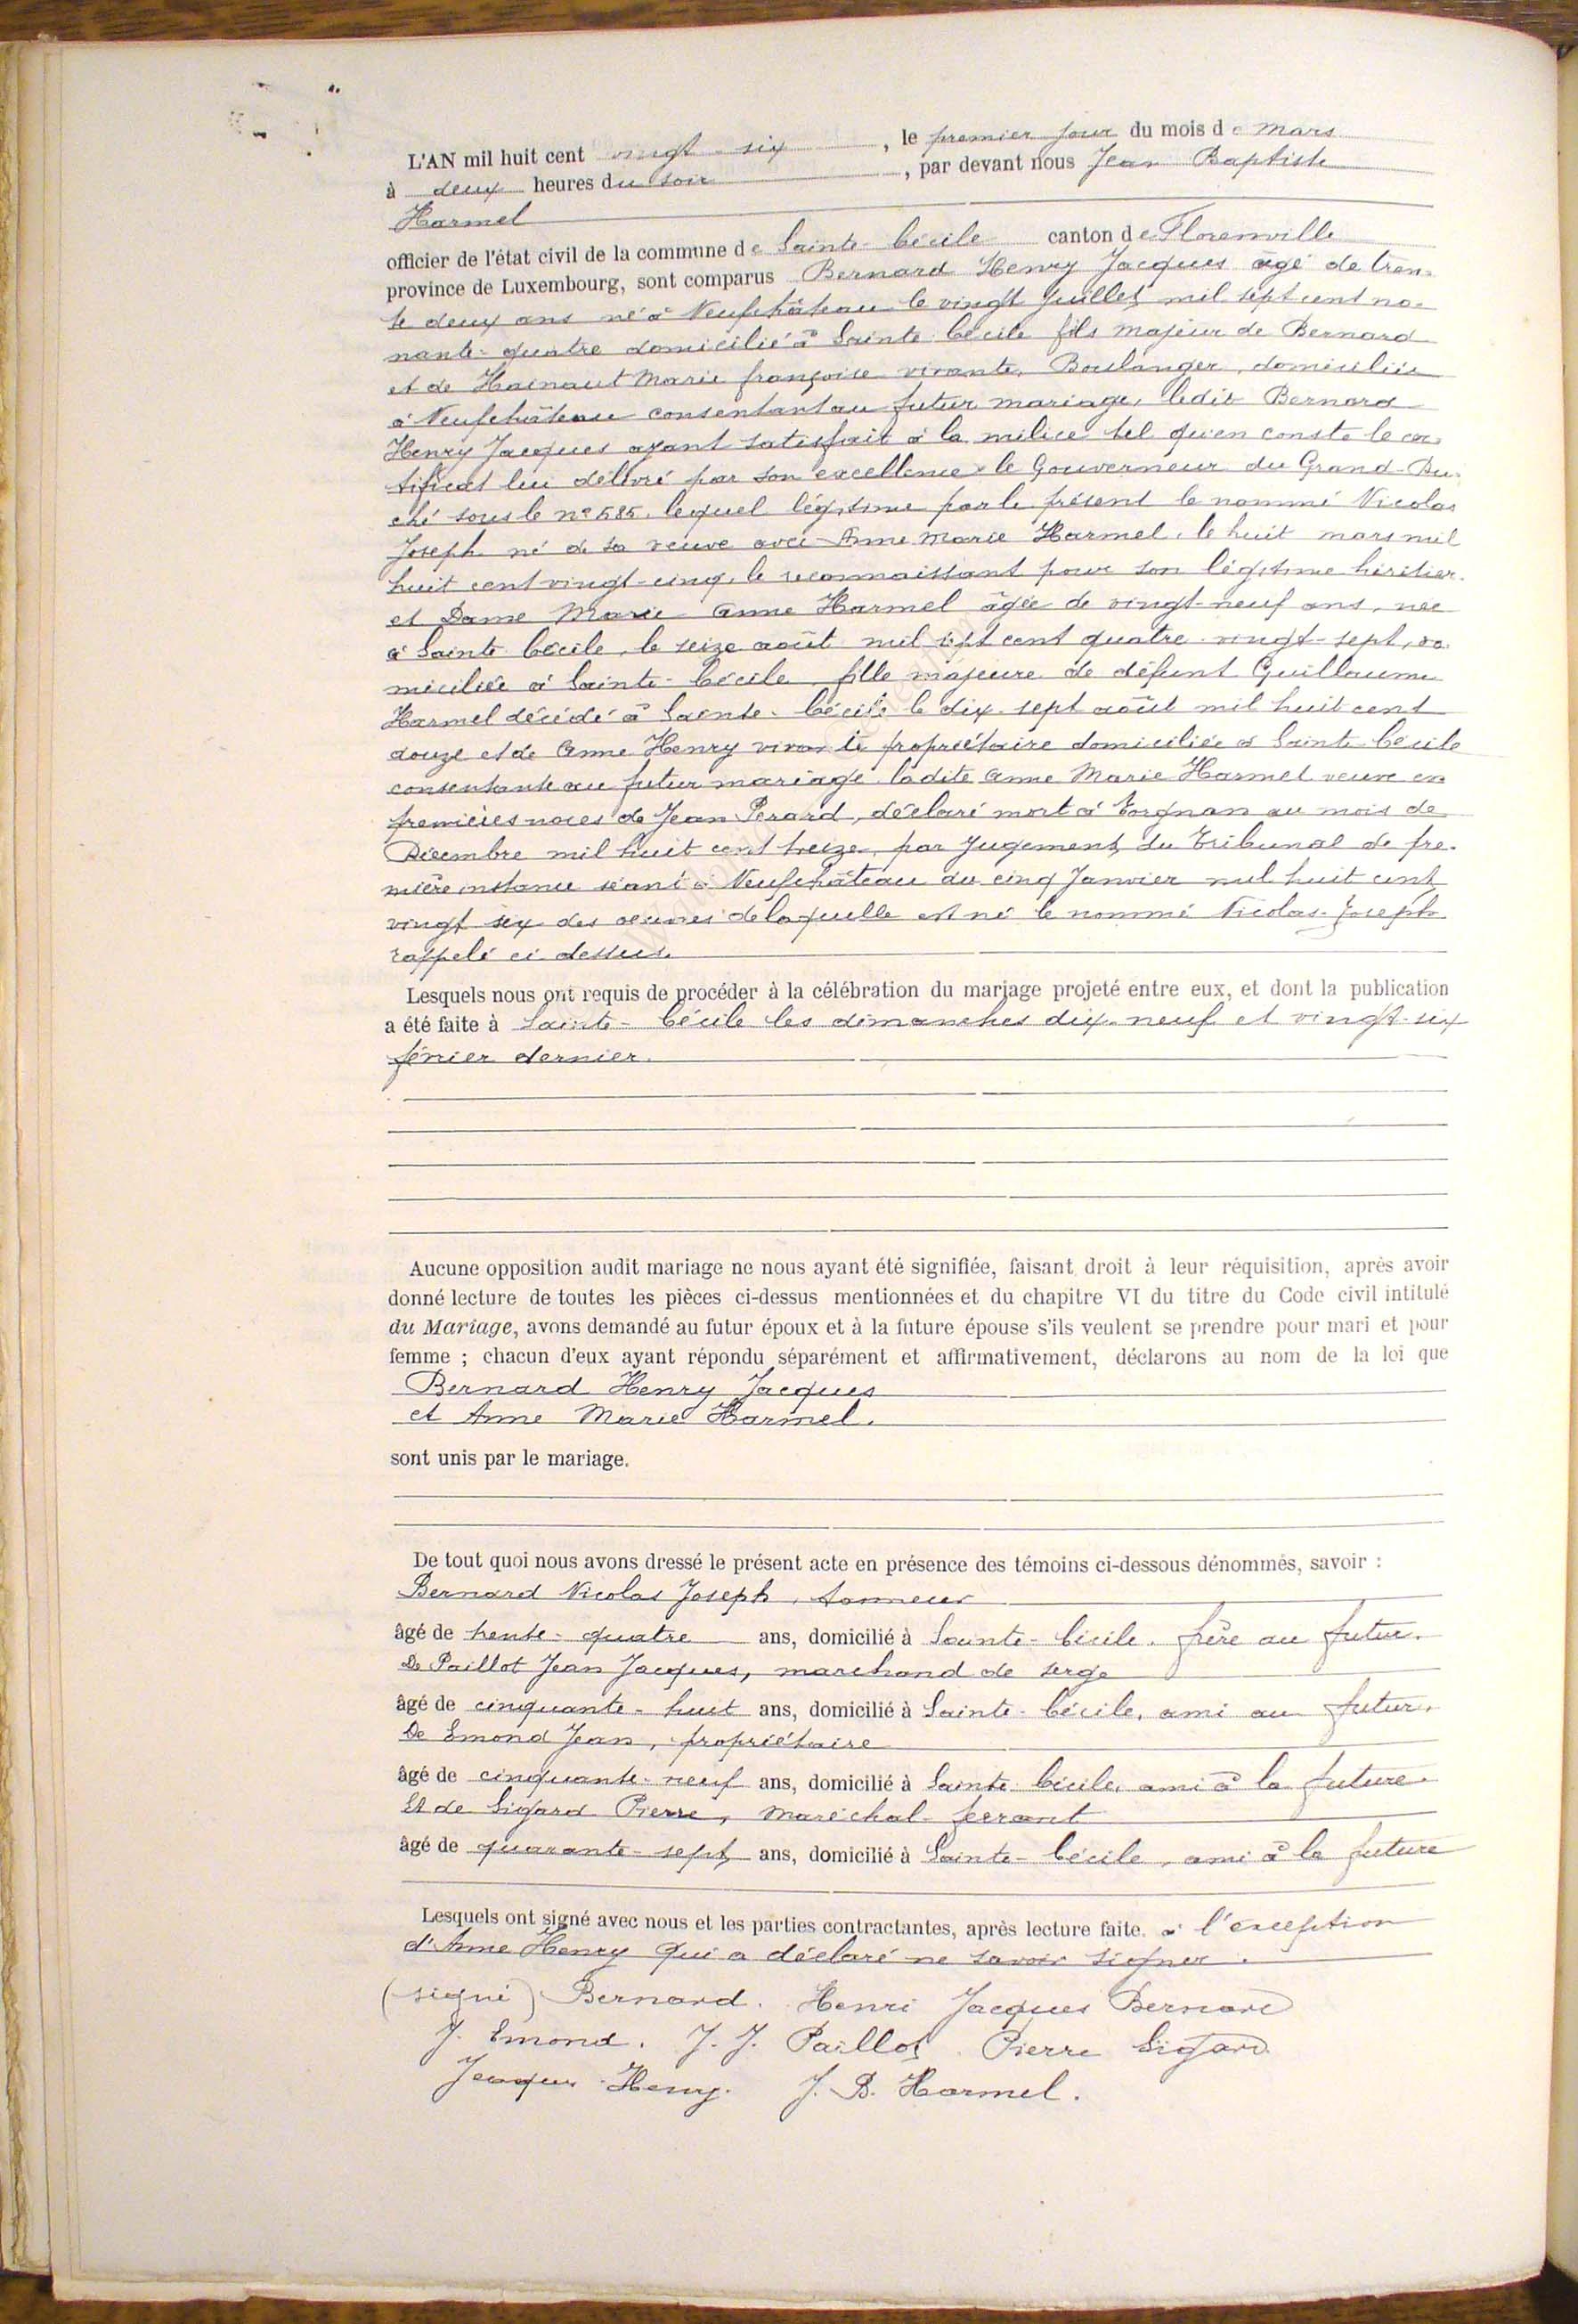 L'AN mil huit cent vingt-six, le premier jour du mois de Mars
à deux heures du soir, par devant nous Jean Baptiste
Harmel
officier de l'état civil de la commune de Sainte-Cécile canton de Florenville
province de Luxembourg, sont comparus Bernard Henry Jacques agé de tren-
te deux ans né à Neufchâteau le vingt Juillet mil sept cent no-
nante-quatre domicilié à Sainte Cécile fils majeur de Bernard
et de Hainaut Marie françoise vivante, Boulanger, domiciliée
à Neufchâteau consentant au futur mariage, ledit Bernard
Henry Jacques ayant satisfait à la milice tel qu'en conste le cer-
tificat lui délivré par son excellence le Gouverneur du Grand-Du-
ché sous le n° 585. lequel légitime par le présent le nommé Nicolas
Joseph né de sa veuve avec Anne Marie Harmel, le huit mars mil
huit cent vingt-cinq, le reconnaissant pour son légitime héritier.
et Dame Marie Anne Harmel âgée de vingt-neuf ans, née
à Sainte Cécile, le seize août mil sept cent quatre-vingt-sept, do-
miciliée à Sainte-Cécile fille majeure de défunt Guillaume
Harmel décédé à Sainte-Cécile le dix-sept août mil huit cent
douze et de Anne Henry vivante propriétaire domiciliée à Sainte-Cécile
consentante au futur mariage ladite Anne Marie Harmel veuve en
premières noces de Jean Perard, déclaré mort à Torgnan au mois de
Décembre mil huit cent treize, par Jugement du Tribunal de pre-
mière instance séant à Neufchâteau du cinq Janvier mil huit cent
vingt six des œuvres de laquelle est né le nommé Nicolas-Joseph
rappelé ci dessus.
Lesquels nous ont requis de procéder à la célébration du mariage projeté entre eux, et dont la publication
a été faite à Sainte-Cécile les dimanches dix-neuf et vingt-six
février dernier.
Aucune opposition audit mariage ne nous ayant été signifiée, faisant droit à leur réquisition, après avoir
donné lecture de toutes les pièces ci-dessus mentionnées et du chapitre VI du titre du Code civil intitulé
du Mariage, avons demandé au futur époux et à la future épouse s'ils veulent se prendre pour mari et pour
femme ; chacun d'eux ayant répondu séparément et affirmativement, déclarons au nom de la loi que
Bernard Henry Jacques
et Anne Marie Harmel.
sont unis par le mariage.
De tout quoi nous avons dressé le présent acte en présence des témoins ci-dessous dénommés, savoir :
Bernard Nicolas Joseph, tanneur
âgé de trente-quatre ans, domicilié à Sainte-Cécile. frère au futur.
De Paillot Jean Jacques, marchand de serge
âgé de cinquante-huit ans, domicilié à Sainte-Cécile, ami au futur,
De Emond Jean, propriétaire
âgé de cinquante-neuf ans, domicilié à Sainte Cécile, ami à la future.
Et de Sigard Pierre, Maréchal-ferrant
âgé de quarante-sept ans, domicilié à Sainte-Cécile, ami à la future
Lesquels ont signé avec nous et les parties contractantes, après lecture faite. à l'exception
d'Anne Henry qui a déclaré ne savoir signer.
(signé) Bernard. Henri Jacques Bernard
J. Emond. J. J. Paillot. Pierre Sigard.
Jacques Henry. J. B. Harmel.